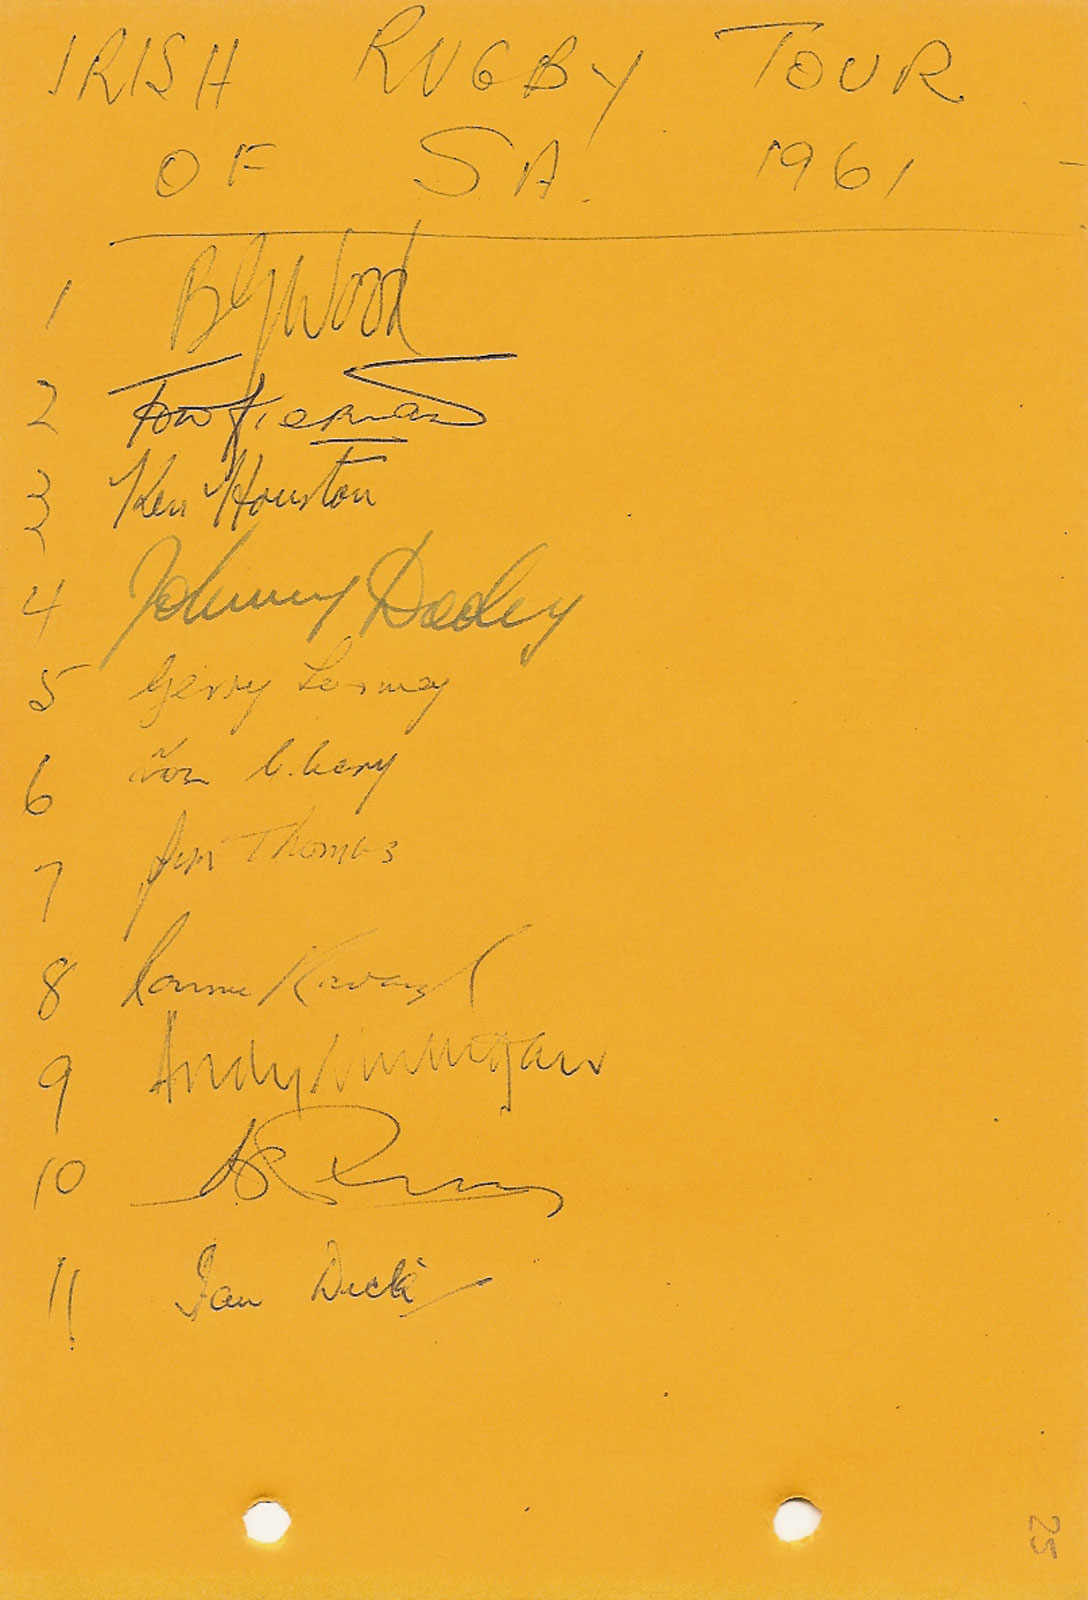 IRISH RUGBY TOUR
OF SA. 1961
1 BGWood
2 Tom Kiernan
3 Ken Houston
4 Johnny Dooley
5 Gerry
6 Tom Cleary
7 Jim Thomas
8 Ronnie Kavanagh
9 Andy Mulligan
10
11 Ian Dick
25